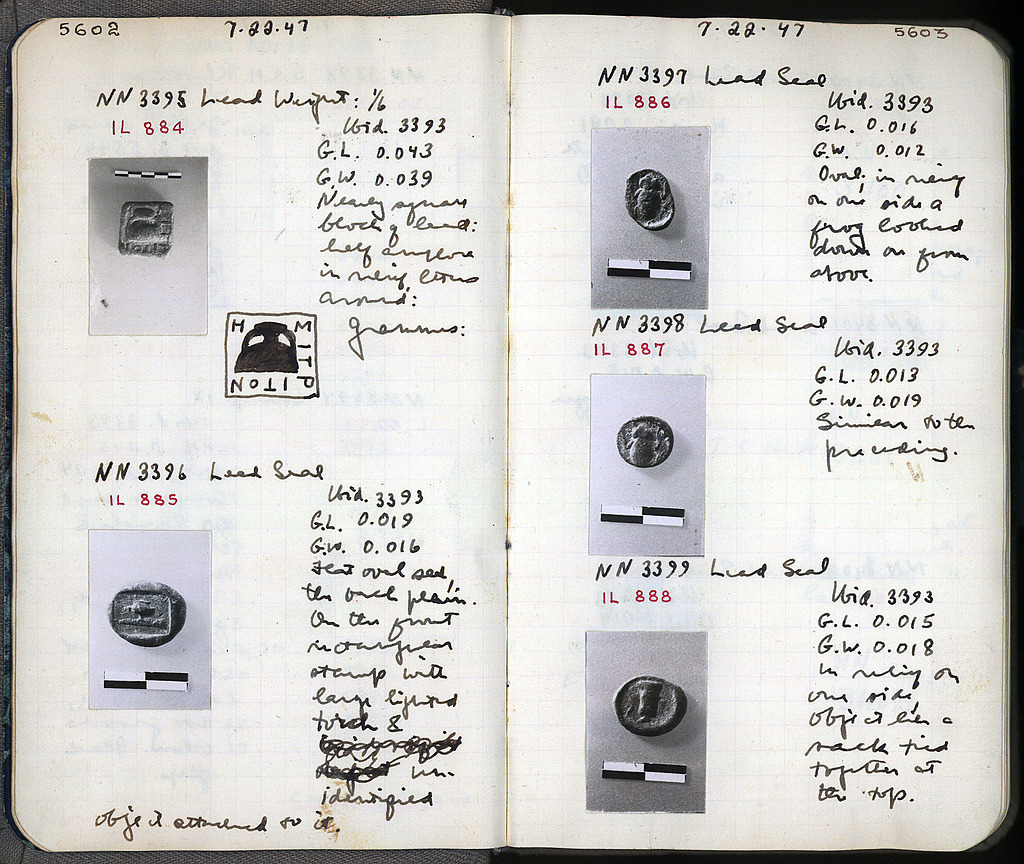 5602
7-22-47
NN 3395 Lead Weight: 1/6
IL 884
Ibid. 3393
G.L. 0.043
G.W. 0.039
Nearly square
block of lead:
half amphora
in relief, letters
around:
grammus:
H M
I T
P ITON
NN 3396 Lead Seal
IL 885
Ibid. 3393
G.L. 0.019
G.W. 0.016
Flat oval seal,
the back plain.
On the front
rectangular
stamp with
large lighted
torch &
un-
identified
object attached to it.
7-22-47
5603
NN 3397 Lead Seal
IL 886
Ibid. 3393
G.L. 0.016
G.W. 0.012
Oval; in relief
on one side a
frog looked
down on from
above.
NN 3398 Lead Seal
IL 887
Ibid. 3393
G.L. 0.013
G.W. 0.019
Similar to the
preceding.
NN 3399 Lead Seal
IL 888
Ibid. 3393
G.L. 0.015
G.W. 0.018
In relief on
one side,
object like a
sack tied
together at
the top.